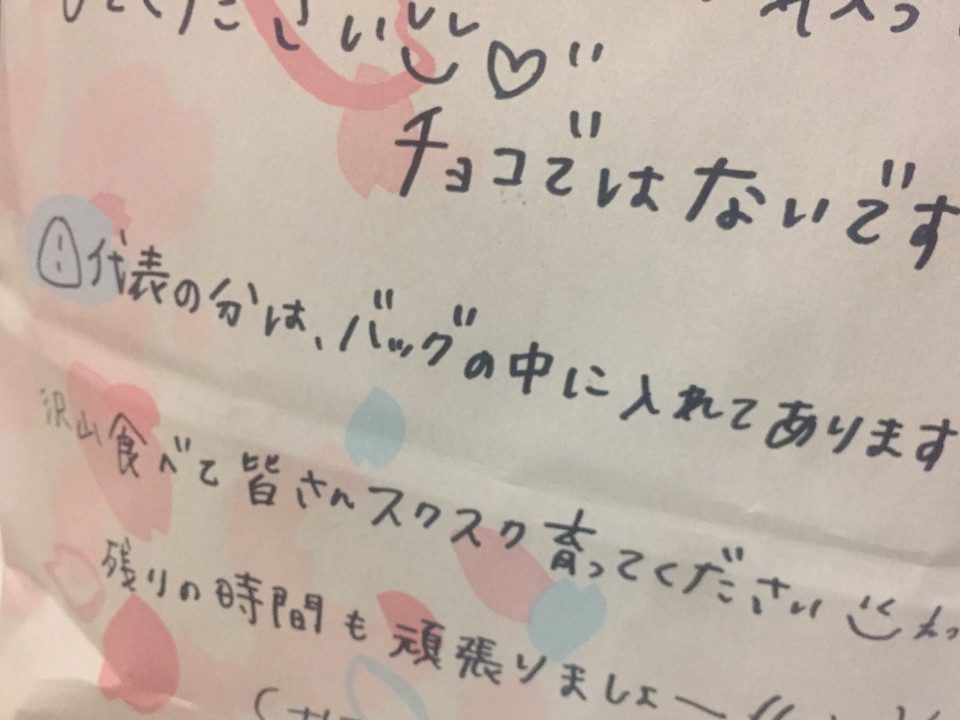 ください♡
チョコではないです
代表の分は、バッグの中に入れてあります
沢山食べて皆さんスクスク育ってください
残りの時間も頑張りましょー